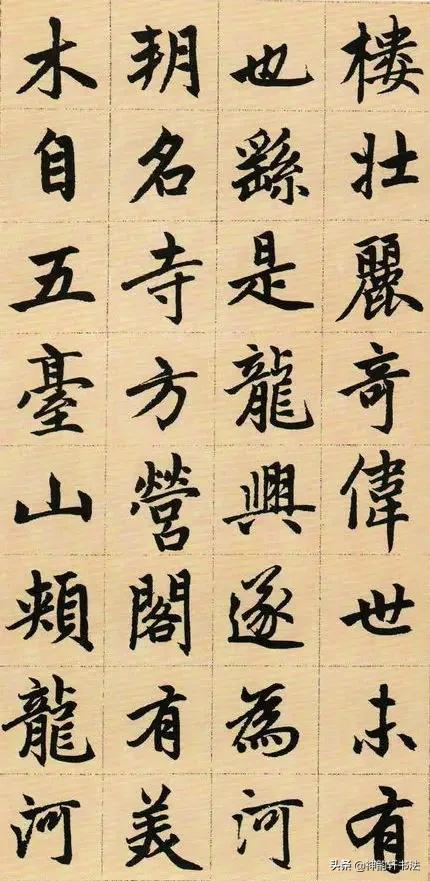 樓壯麗奇偉世未有
也繇是龍興遂為河
朔名寺方營閣有美
木自五臺山頰龍河
头条 @神龍轩书法